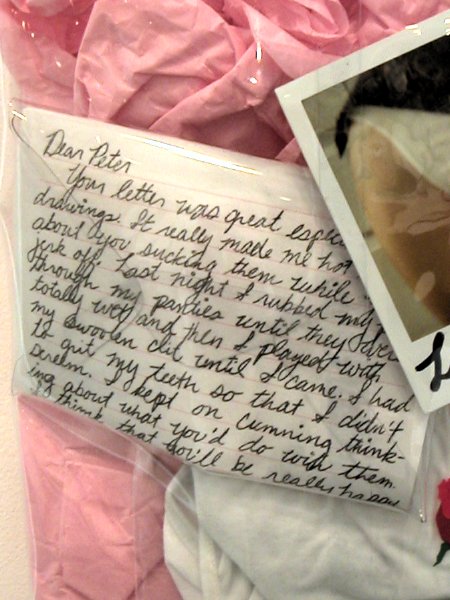 Dear Peter
Your letter was great
drawings. It really made me hot
about you sucking them while
jerk off. Last night I rubbed my
through my panties until they were
totally wet and then I played with
my swollen clit until I came. I had
to grit my teeth so that I didn't
scream. I kept on cumming think-
ing about what you'd do with them
I think that you'll be really happy